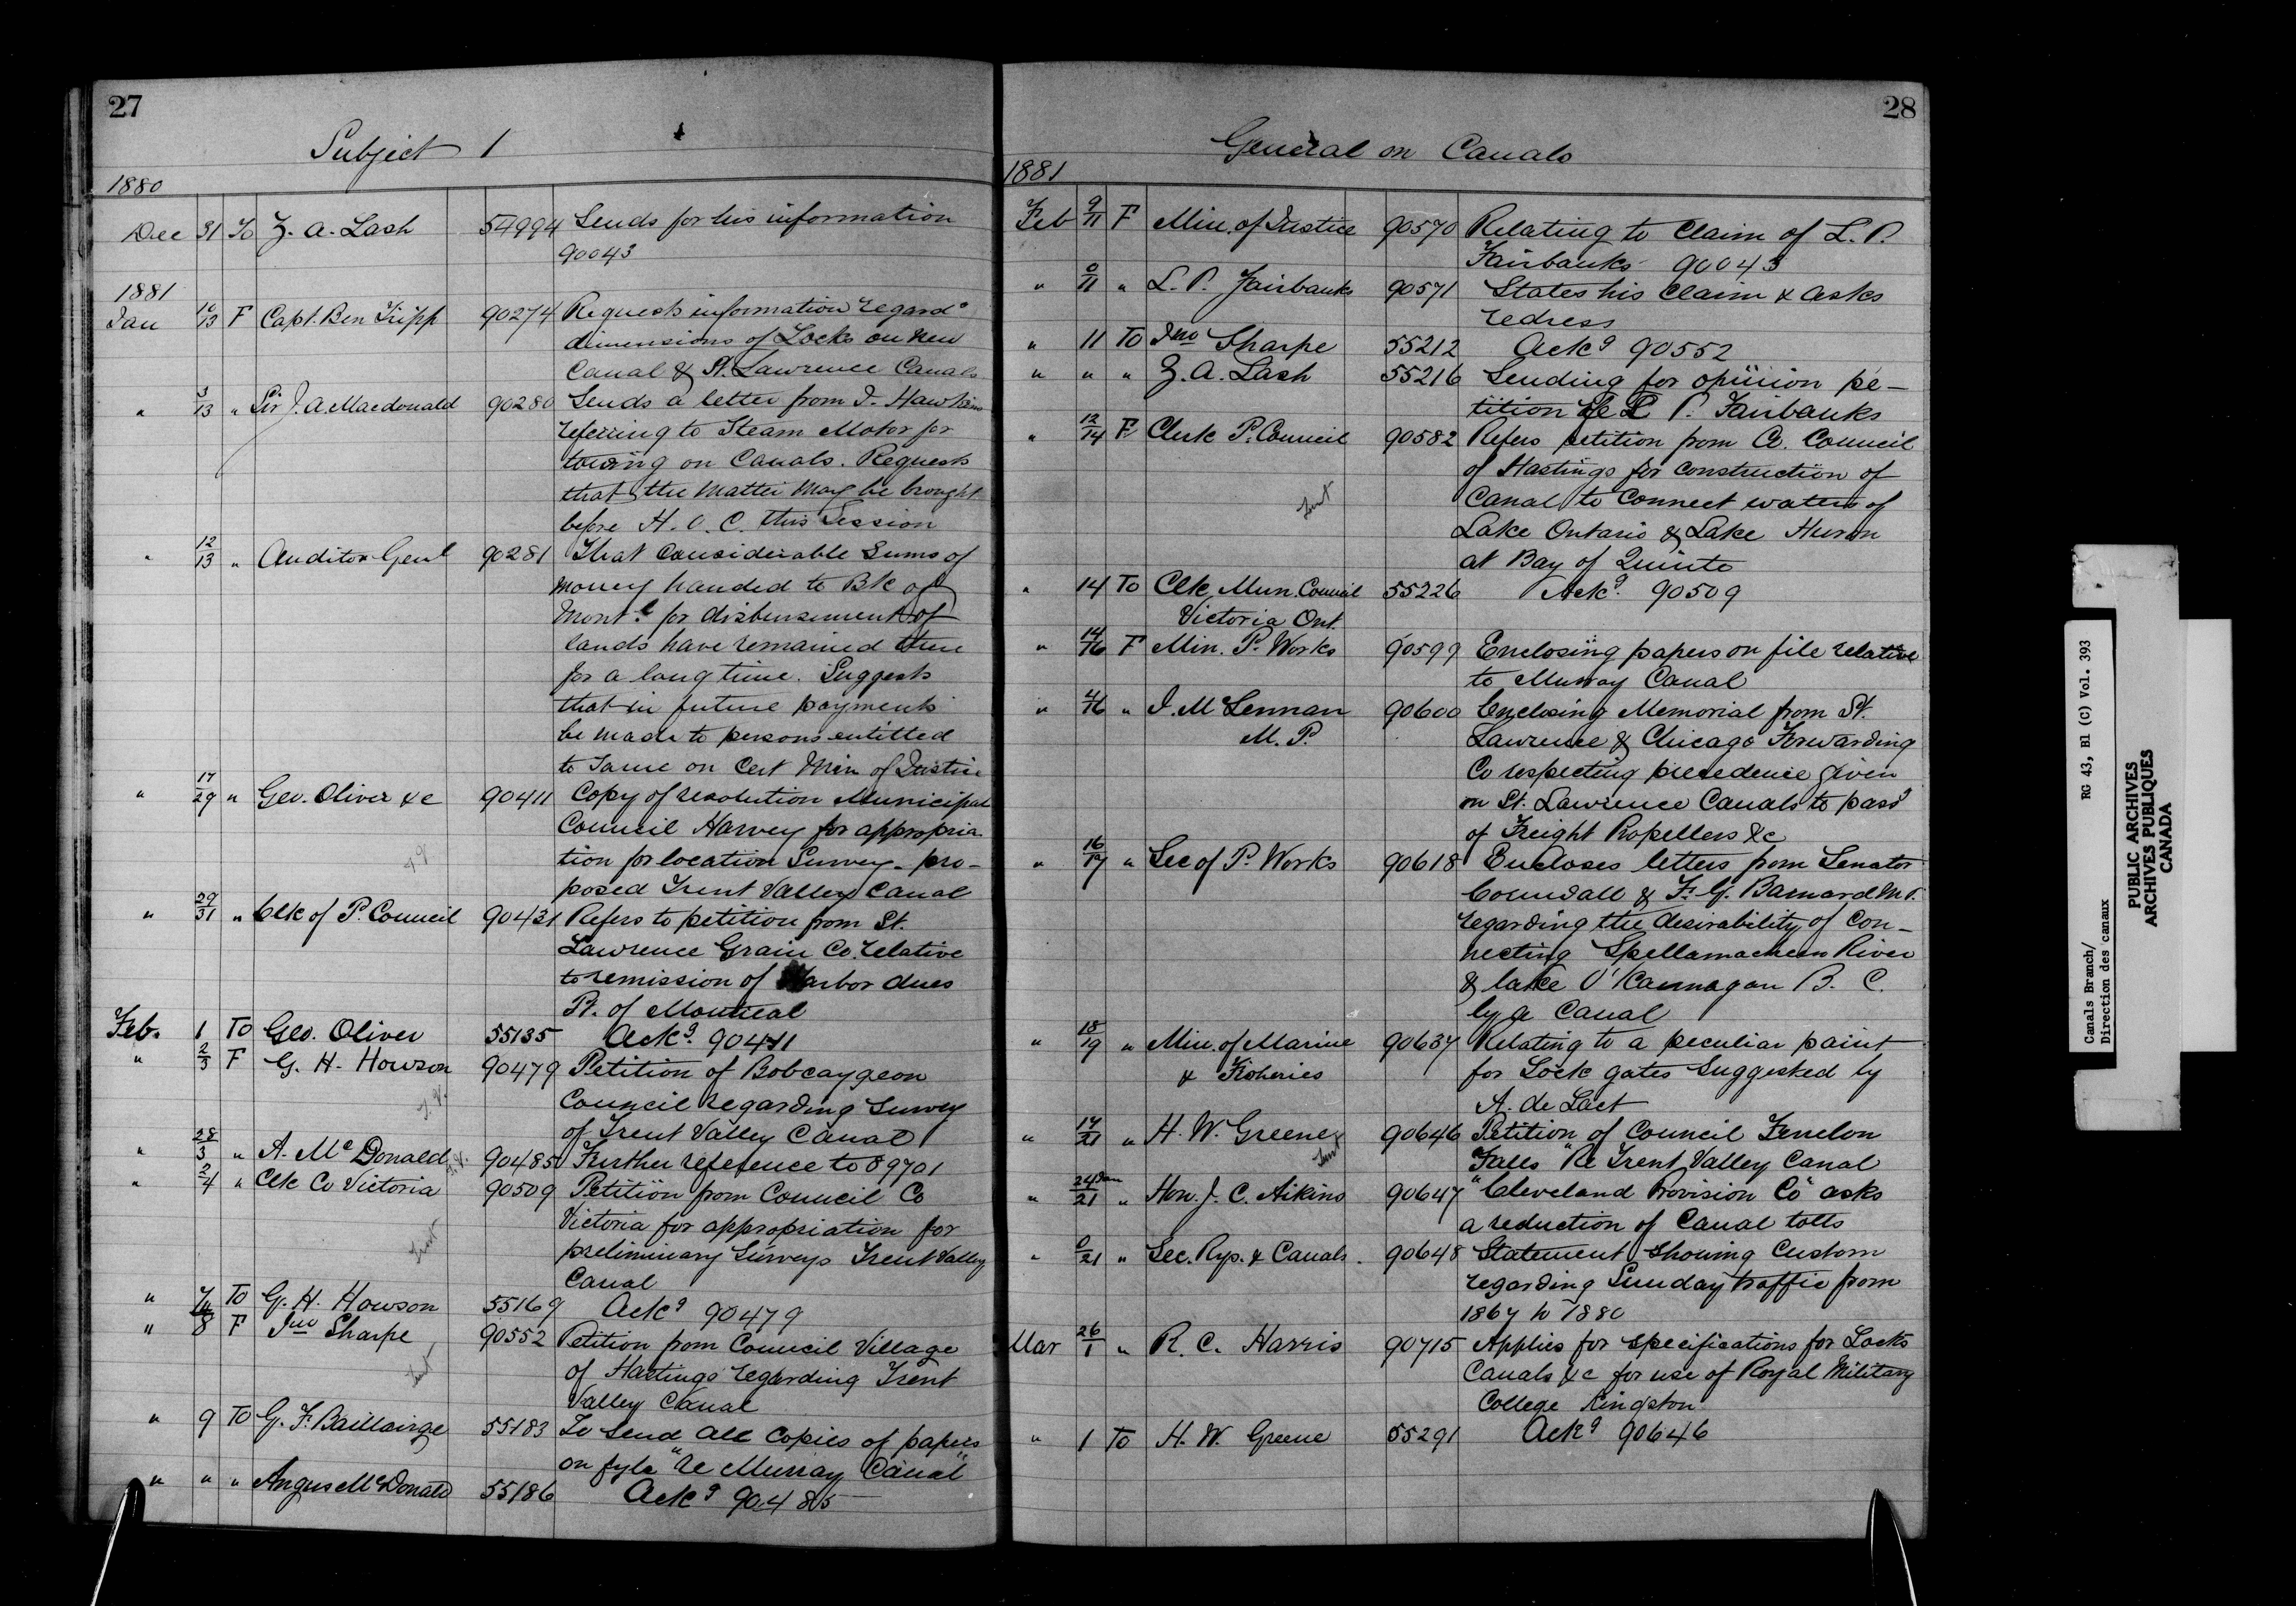 27
Subject 1
1880
Dec 31 To Z. A. Lash 54994 Sends for his information
90043
1881
Jan 10/13 F Capt. Ben Tripp 90274 Requests information regardg
dimensions of Locks on New
Canal & St. Lawrence Canals
" 3/13 " Sir J. A. Macdonald 90280 Sends a letter from J. Hawkins
referring to Steam Motor for
towing on Canals. Requests
that the matter may be brought
before H. O. C. this Session
" 12/13 " Auditor Genl 90281 That considerable Sums of
money handed to Bk of
Montl for disbursement of
lands have remained there
for a long time. Suggests
that in future payments
be made to persons entitled
to same on Cert Min of Justice
" 17/29 " Geo. Oliver &c 90411 Copy of resolution Municipal
Council Harvey for appropria-
tion for location Survey - pro-
posed Trent Valley Canal
" 29/31 " Clk of P. Council 90431 Refers to petition from St.
Lawrence Grain Co. relative
to remission of Harbor dues
Pt. of Montreal
Feb. 1 To Geo. Oliver 55135 Ackg 90411
" 2/3 F G. H. Howson 90479 Petition of Bobcaygeon
Council regarding Survey
of Trent Valley Canal
" 28/3 " A. Mc Donald 90485 Further reference to 89701
" 2/4 " Clk Co Victoria 90509 Petition from Council Co
Victoria for appropriation for
preliminary Surveys Trent Valley
Canal
Trent
" 7 To G. H. Howson 55169 Ackg 90479
" 8 F Jno Sharpe 90552 Petition from Council Village
of Hastings regarding Trent
Valley Canal
Trent
" 9 To G. F. Baillairge 55183 To Send all Copies of papers
on fyle "re Murray Canal"
" " " Angus McDonald 55186 Ackg 90485
28
General on Canals
1881
Feb 9/11 F Min. of Justice 90570 Relating to Claim of L. P.
Fairbanks 90043
" 0/11 " L. P. Fairbanks 90571 States his Claim & asks
redress
" 11 To Jno Sharpe 55212 Ackg 90552
" " " Z. A. Lash 55216 Sending for opinion pe-
tition re L P. Fairbanks
" 12/14 F Clerk P. Council 90582 Refers petition from Co. Council
of Hastings for construction of
Canal to Connect waters of
Trent
Lake Ontario & Lake Huron
at Bay of Quinte
" 14 To Clk Mun. Council 55226 Ackg. 90509
Victoria Ont.
" 14/16 F Min. P. Works 90599 Enclosing papers on file relative
to Murray Canal
" 4/16 " J. McLennan 90600 Enclosing Memorial from St.
M. P. Lawrence & Chicago Forwarding
Co respecting precedence given
on St. Lawrence Canals to passg
of Freight Propellers &c
" 16/17 " Sec of P. Works 90618 Encloses letters from Senator
Cornwall & F. G. Barnard M.P.
regarding the desirability of con-
necting Spellamacheen River
& lake O'Kannagan B. C.
by a Canal
" 18/19 " Min. of Marine 90637 Relating to a peculiar paint
& Fisheries for Lock gates Suggested by
A. de Laet
" 17/21 " H. W. Greene 90646 Petition of Council Fenelon
Trent Falls "Re Trent Valley Canal
" 24 Jan/21 " Hon. J. C. Aikins 90647 "Cleveland Provision Co" asks
a reduction of Canal tolls
" 0/21 " Sec. Rys. & Canals. 90648 Statement Showing Custom
regarding Sunday traffic from
1867 to 1880
Mar 26/1 " R. C. Harris 90715 Applies for specifications for Locks
Canals &c for use of Royal Military
College Kingston
" 1 To H. W. Greene 55291 Ackg 90646
Canals Branch/
Direction des canaux
RG 43, B1 (C) Vol. 393
PUBLIC ARCHIVES
ARCHIVES PUBLIQUES
CANADA